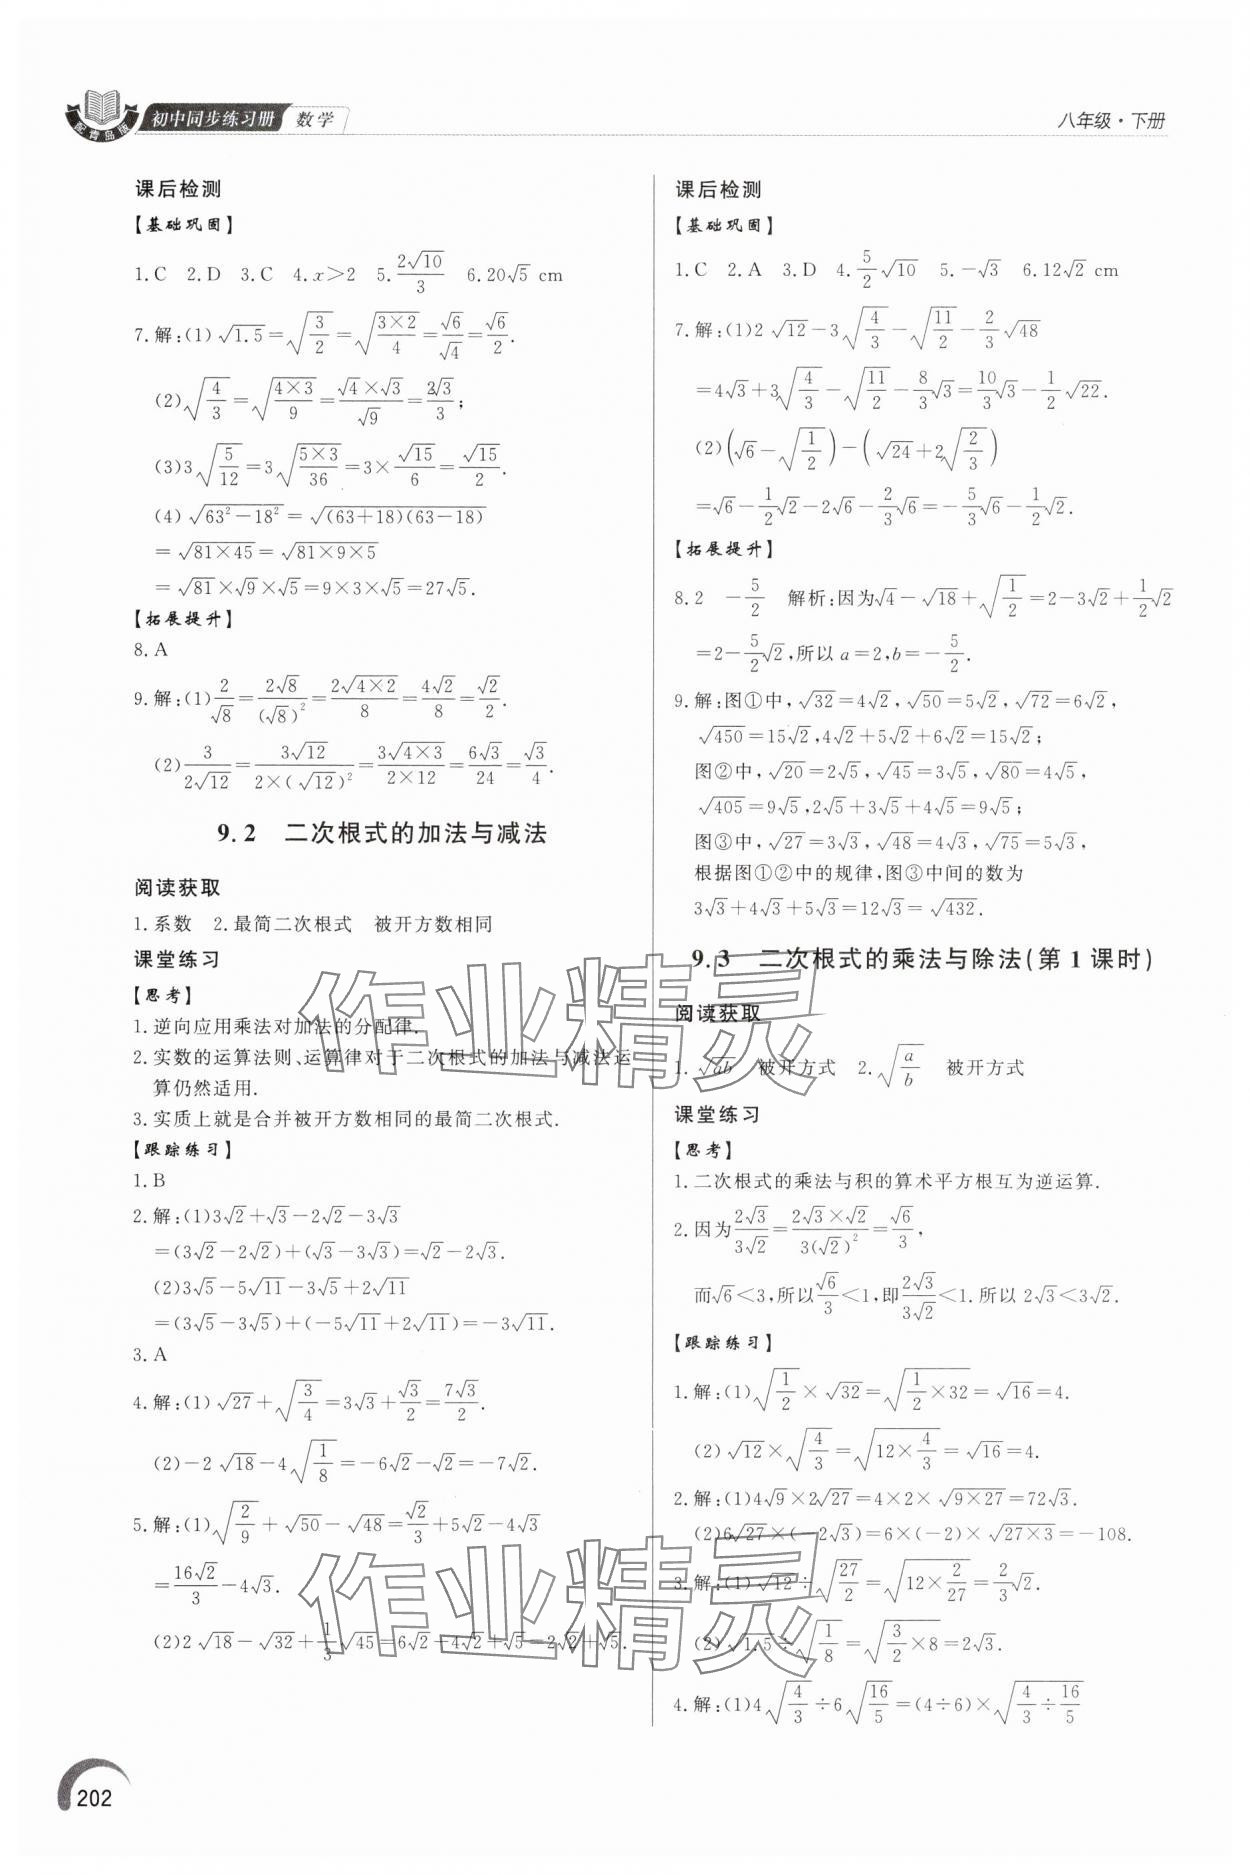 配青岛版
初中同步练习册 数学
八年级·下册
课后检测
【基础巩固】
1.C 2.D 3.C 4.x>2 5.2√10/3 6.20√5 cm
7.解:(1)√1.5=√(3/2)=√((3×2)/4)=√6/√4=√6/2.
(2)√(4/3)=√((4×3)/9)=(√4×√3)/√9=2√3/3;
(3)3√(5/12)=3√((5×3)/36)=3×√15/6=√15/2.
(4)√(63²-18²)=√((63+18)(63-18))
=√(81×45)=√(81×9×5)
=√81×√9×√5=9×3×√5=27√5.
【拓展提升】
8.A
9.解:(1)2/√8=2√8/(√8)²=2√(4×2)/8=4√2/8=√2/2.
(2)3/(2√12)=3√12/(2×(√12)²)=3√(4×3)/(2×12)=6√3/24=√3/4.
9.2 二次根式的加法与减法
阅读获取
1.系数 2.最简二次根式 被开方数相同
课堂练习
【思考】
1.逆向应用乘法对加法的分配律.
2.实数的运算法则、运算律对于二次根式的加法与减法运
算仍然适用.
3.实质上就是合并被开方数相同的最简二次根式.
【跟踪练习】
1.B
2.解:(1)3√2+√3-2√2-3√3
=(3√2-2√2)+(√3-3√3)=√2-2√3.
(2)3√5-5√11-3√5+2√11
=(3√5-3√5)+(-5√11+2√11)=-3√11.
3.A
4.解:(1)√27+√(3/4)=3√3+√3/2=7√3/2.
(2)-2√18-4√(1/8)=-6√2-√2=-7√2.
5.解:(1)√(2/9)+√50-√48=√2/3+5√2-4√3
=16√2/3-4√3.
(2)2√18-√32+1/3√45=6√2-4√2+√5=2√2+√5.
课后检测
【基础巩固】
1.C 2.A 3.D 4.5/2√10 5.-√3 6.12√2 cm
7.解:(1)2√12-3√(4/3)-√(11/2)-2/3√48
=4√3+3√(4/3)-√(11/2)-8/3√3=10/3√3-1/2√22.
(2)(√6-√(1/2))-(√24+2√(2/3))
=√6-1/2√2-2√6-2/3√6=-5/3√6-1/2√2.
【拓展提升】
8.2 -5/2 解析:因为√4-√18+√(1/2)=2-3√2+1/2√2
=2-5/2√2,所以a=2,b=-5/2.
9.解:图①中,√32=4√2,√50=5√2,√72=6√2,
√450=15√2,4√2+5√2+6√2=15√2;
图②中,√20=2√5,√45=3√5,√80=4√5,
√405=9√5,2√5+3√5+4√5=9√5;
图③中,√27=3√3,√48=4√3,√75=5√3,
根据图①②中的规律,图③中间的数为
3√3+4√3+5√3=12√3=√432.
9.3 二次根式的乘法与除法(第1课时)
阅读获取
1.√ab 被开方式 2.√(a/b) 被开方式
课堂练习
【思考】
1.二次根式的乘法与积的算术平方根互为逆运算.
2.因为2√3/3√2=(2√3×√2)/(3(√2)²)=√6/3,
而√6<3,所以√6/3<1,即2√3/3√2<1.所以2√3<3√2.
【跟踪练习】
1.解:(1)√(1/2)×√32=√(1/2×32)=√16=4.
(2)√12×√(4/3)=√(12×4/3)=√16=4.
2.解:(1)4√9×2√27=4×2×√(9×27)=72√3.
(2)6√27×(-2√3)=6×(-2)×√(27×3)=-108.
3.解:(1)√12÷√(27/2)=√(12×2/27)=2/3√2.
(2)√1.5÷√(1/8)=√(3/2×8)=2√3.
4.解:(1)4√(4/3)÷6√(16/5)=(4÷6)×√(4/3÷16/5)
作业精灵
作业精灵
202